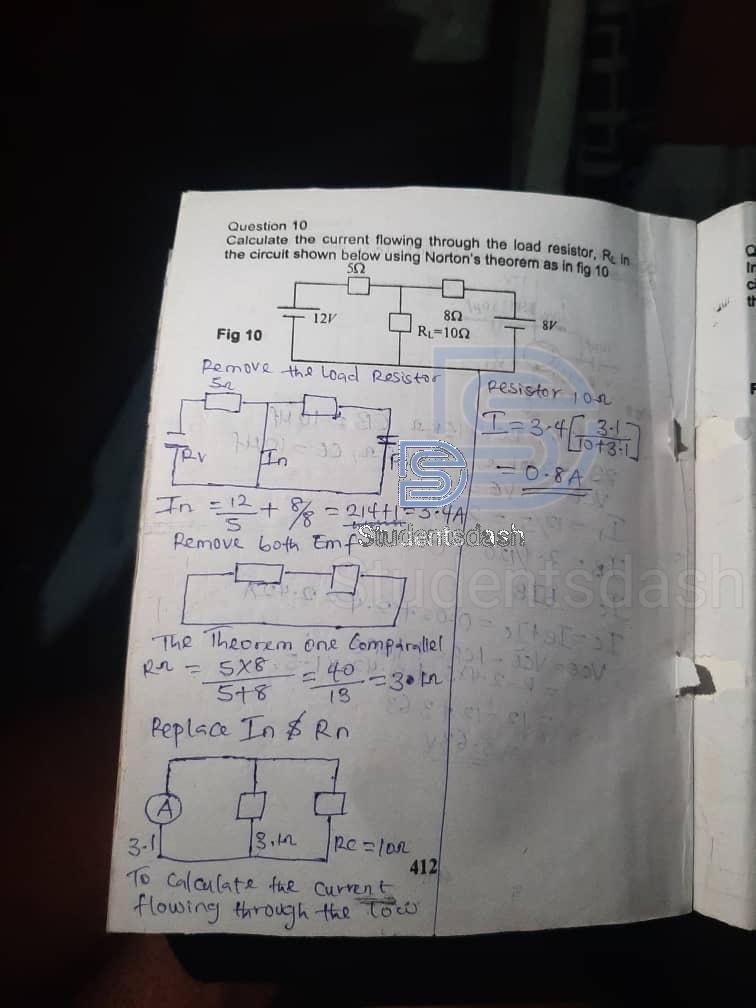 Question 10
Calculate the current flowing through the load resistor, RL in
the circuit shown below using Norton's theorem as in fig 10
5Ω
12V
8Ω
RL=10Ω
8V
Fig 10
Remove the Load Resistor
5Ω
In
In = 12/5 + 8/8 = 214+1 = 3.4A
Remove both Emf
Studentsdash
Studentsdash
The Theorem one Comparallel
= 5x8/5+8 = 40/13 = 3.1Ω
Replace In $ Rn
A
3.1
3.1Ω
RC = 10Ω
To Calculate the Current
flowing through the
Resistor 10Ω
I = 3.4[3.1/10+3.1]
= 0.8A
412